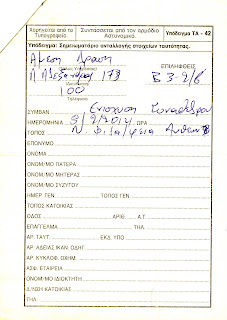 Χορηγείται από το Τυπογραφείο
Συντάσσεται από τον αρμόδιο Αστυνομικό.
Υπόδειγμα ΤΑ - 42
Υπόδειγμα: Σημειωματάριο ανταλλαγής στοιχείων ταυτότητας.
Άμεση Δράση
ΕΠΙΛΗΦΘΕΙΣ
Λ. Αλεξάνδρας 173
Β 3-9/6
100
Τηλέφωνο
ΣΥΜΒΑΝ
ΗΜΕΡΟΜΗΝΙΑ 9/2/2014 ΩΡΑ
ΤΟΠΟΣ
ΕΠΩΝΥΜΟ
ΟΝΟΜΑ
ΟΝΟΜ/ΜΟ ΠΑΤΕΡΑ
ΟΝΟΜ/ΜΟ ΜΗΤΕΡΑΣ
ΟΝΟΜ/ΜΟ ΣΥΖΥΓΟΥ
ΗΜΕΡ. ΓΕΝ. ΤΟΠΟΣ ΓΕΝ.
ΤΟΠΟΣ ΚΑΤΟΙΚΙΑΣ
ΟΔΟΣ ΑΡΙΘ. Α.Τ.
ΕΠΑΓΓΕΛΜΑ ΤΗΛ.
ΑΡ. ΤΑΥΤ. ΕΚΔ. ΥΠΟ
ΑΡ. ΑΔΕΙΑΣ ΙΚΑΝ. ΟΔΗΓ.
ΑΡ. ΚΥΚΛΟΦ. ΟΧΗΜ.
ΑΣΦ. ΕΤΑΙΡΕΙΑ
ΟΝΟΜ/ΜΟ ΙΔΙΟΚΤΗΤΗ
Δ/ΝΣΗ ΚΑΤΟΙΚΙΑΣ
ΤΗΛ.